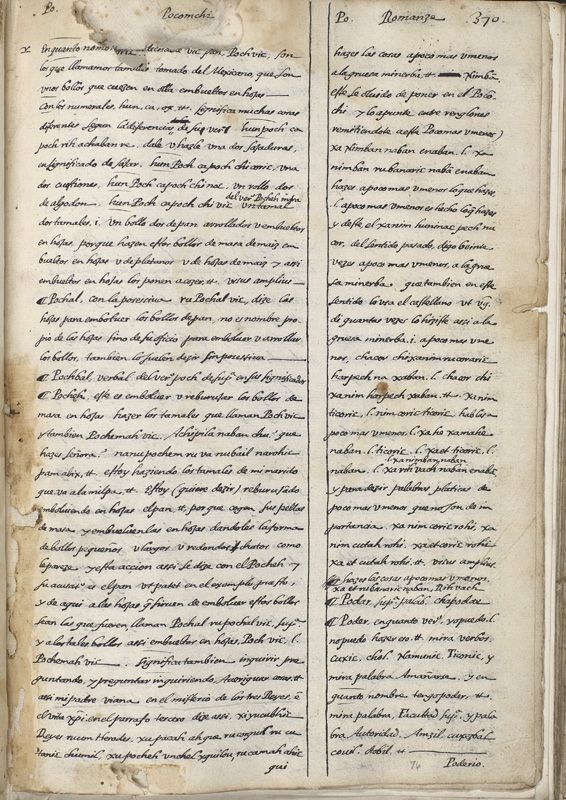 Po. Pocomchi
en quanto nombre decian a vic pan Poch vic, son
los que llaman tamales tomado del Mexicano, que son
unos bollos que cuezen en olla embueltos en hojas
Con los numerales, hun, ca, ox, tt. significa muchas cosas
diferentes segun la diferencias de su verº hun poch ca
poch
en significado de hun Poch ca poch chi una
dos hun Poch ca poch chi noc un rollo dos
de algodon. hun Poch ca poch chi vic un tamal
del verº Pocheh infra
dos tamales, i. Un bollo dos de pan arrollados y embueltos
en hojas, porque hazen estos bollos de masa de maiz em
bueltos en hojas u de platanos u de hojas de maiz y assi
embueltos en hojas los ponen a cozer, tt. usus amplius
¶ Pochal, con la possessiva ru Pochal vic, dize las
hojas para emboluer los bollos de pan, no es nombre pro
pio de las hojas sino de su oficio para emboluer y arrollar
los bollos, tambien lo suelen dezir sin possessiva
¶ Pochbal verbal del verº poch de supª en sus significados
¶ Pocheh, este es emboluer u reburujar los bollos de
masa en hojas hazer los tamales que llaman Poch vic
y tambien Pochemah vic. Achipila naban chiº que
hazes señora? nanu pochem ru va nubail narohic
pam abix, tt estoy haziendo los tamales de mi marido
que va a la milpa, tt. Estoy (quiere dezir) reburujado
emboluiendo en hojas el pan, tt porque cogen sus pellas
de masa y embueluenlas en hojas dandoles la forma
de bollos pequenos u largos u redondos chatos como
le pareze y esta accion assi se dize con el Pocheh y
su acusatº es el pan ut patet en el exemplo puesto,
y de aqui a las hojas q̃ siruen de emboluer estos bollos
sean las que fueren llaman Pochal ru pochal vic, supª
y a los tales bollos assi embueltos en hojas, Poch vic, l.
Pochemah vic. Significa tambien inquirir pre
guntando, y preguntar inquiriendo, Averiguar cosas, tt
assi mi padre Viana en el misterio de los tres Reyes, e
el viña xpi. en el parrafo tercero dize assi, xi pucubhic
Reyes nu cu Herodes, xu pacah ah que
chumil, xu pocheh vnchel xquilou,
qui
Po. Romanze 370.
hazer las cosas a poco mas u menos
a la gruesa minerba. tt Ximba
este se oluido de poner en el Poco
chi y lo apunte entre renglones
remitiendote a este Poco mas u menos)
xa ximban naban enaban. l. xa
nimban ru banaric naban enaban
hazer a poco mas u menos lo que haze,
l. a poco mas u menos es hecho lo q̃ haze
y deste el xanim huninac pech nu
cor, del sentido pasado, digo beinte
vezes a poco mas u menos, a la grue
sa minerba que tambien en este
sentido lo usa el castellano ut vg.
di quantas vezes lo hiziste assi a la
gruesa minerba. i. a poco mas u me
nos, chacor chi xanim nu coraric
har pech na xaban. l. chacor chi
xa nim har pech xaban. tt. xa nim
ticoric. l. nim coric ticoric hablas a
poco mas u menos. l. xa ho xa mahe
naban. l. ticoric. l. xa et ticoric. l.
l. xa nimban naban
naban. l. xa rihvach naban enaba
y para dezir palabras platicas de
poco mas u menos que no son de im
portancia. xa nim coric rohi, xa
nim cutah rohi. xa et coric rohi
xa et cutah rohi. tt. usus amplius.
¶ hazer las cosas a poco mas u menos,
xa et ru banaric naban, Rihvach
¶ Podar, supª chapodar
¶ Poder, en quanto verº, ya puedo. l.
no puedo hazer eso. tt mira verbos.
Cuxic. chol. Namunic. Ticonic, y
mira palabra Amañarse. y en
quanto nombre tengo poder, tt.
mira palabra, Facultad supª. y pala
bra Autoridad.
couil. tt
74 Poderio.